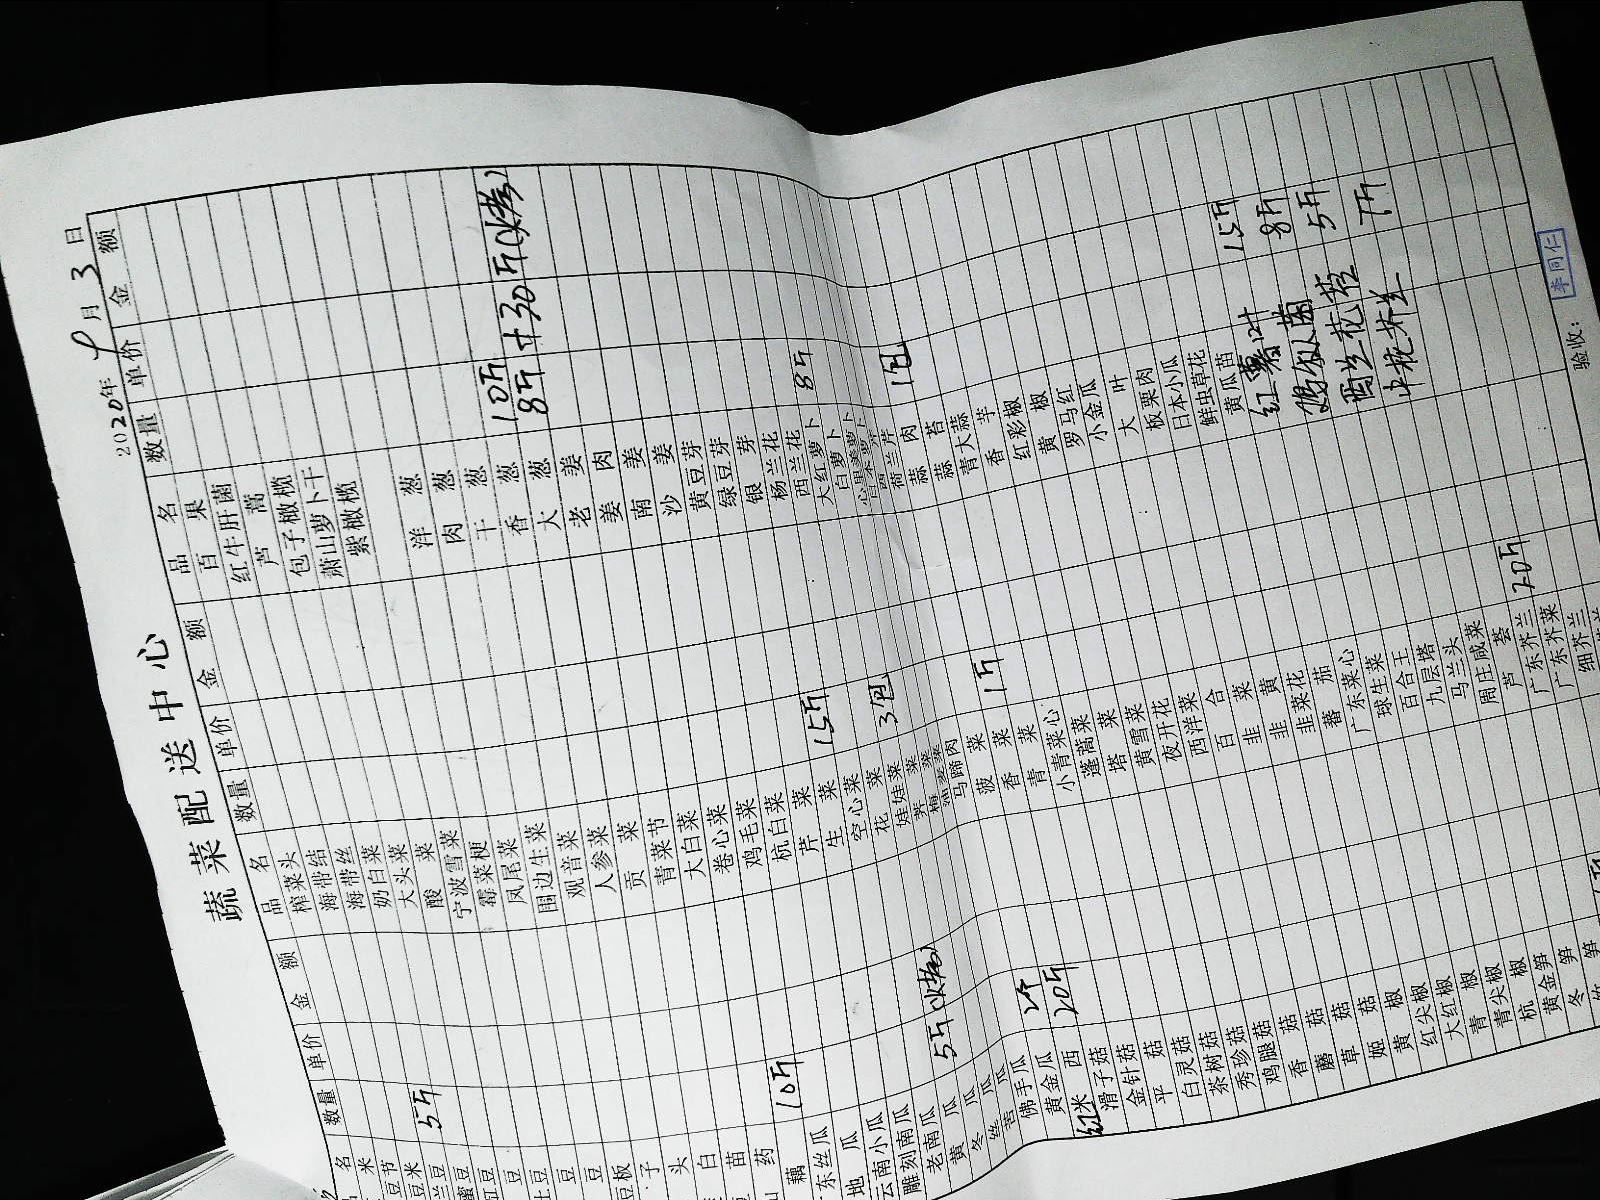 蔬菜配送中心
2020年9月3日
名 数量 单价 金额
米
豆节
豆米
兰豆
豆
豆
豆
豆
豆板
子
头
白
苗
药
藕
东丝瓜
地瓜
云南小瓜
雕刻南瓜
老南瓜
黄瓜
冬瓜
丝瓜
苦瓜
佛手瓜
黄金瓜
红米西
滑子菇
金针菇
平菇
白灵菇
茶树菇
秀珍菇
鸡腿菇
香菇
蘑菇
草菇
姬菇
黄椒
红尖椒
大红椒
青椒
青尖椒
杭椒
黄金笋
冬笋
笋
5斤
10斤
5斤(烤)
2个
20斤
品名 数量 单价 金额
榨菜头
海带结
海带丝
奶白菜
大头菜
酸菜
宁波雪菜
霉菜梗
凤尾菜
围边生菜
观音菜
人参菜
贡菜
青菜节
大白菜
卷心菜
鸡毛菜
杭白菜
芹菜
生菜 15斤
空心菜
花菜
娃娃菜 3包
马蹄肉
菠菜
香菜 1斤
青菜
小青菜心
蓬蒿菜
塔菜
黄雪菜
夜开花
西洋菜
百合
韭菜
韭黄
韭菜花
蕃茄
广东菜心
球生菜
百合王
九层塔
马兰头
周庄咸菜
芦荟
广东芥兰 20斤
广东芥菜
细芥兰
品名 数量 单价 金额
百果
红牛肝菌
芦蒿
包子橄榄
萧山萝卜干
紫橄榄
洋葱
肉葱
干葱
香葱 10斤
大葱 8斤+30斤(烤)
老姜
姜肉
南姜
沙姜
黄豆芽
绿豆芽
银芽
杨兰花
西兰花
大红萝卜 8斤
白萝卜
心里美萝卜
荷兰芹
蒜肉 1包
蒜苔
青大蒜
香芋
红彩椒
黄椒
罗马红
小金瓜
大叶
板栗肉
日本小瓜
鲜虫草花
黄瓜苗
红薯叶 15斤
鸡枞菌 8斤
西兰花苔 5斤
中梗芥兰 7斤
验收:
李同仁